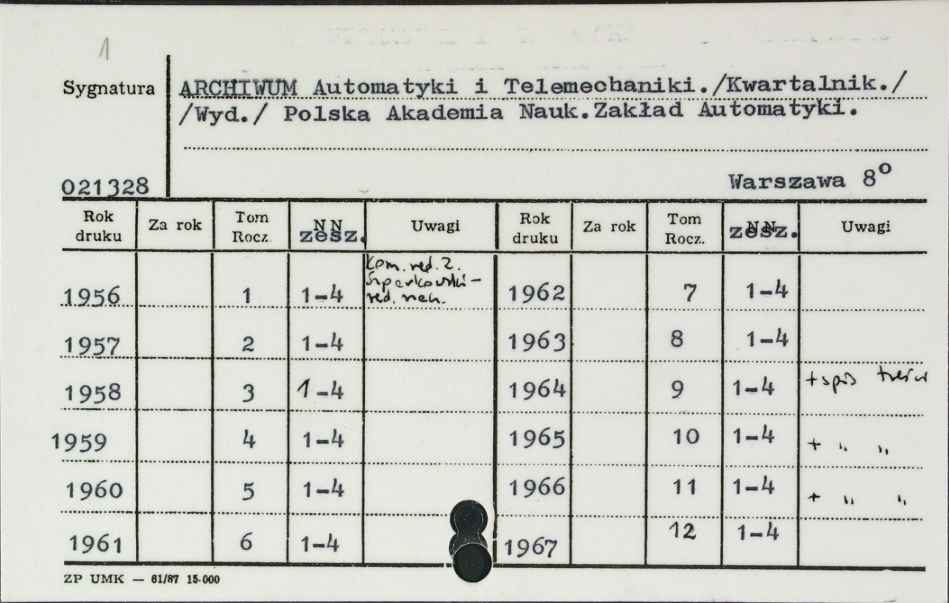 1
Sygnatura ARCHIWUM Automatyki i Telemechaniki./Kwartalnik./
/Wyd./ Polska Akademia Nauk.Zakład Automatyki.
021328 Warszawa 8°
Rok druku Za rok Tom Rocz. NN zesz. Uwagi Rok druku Za rok Tom Rocz. NN zesz. Uwagi
1956 1 1-4 Kom. red. Z. Szparkowski - red. nacz. 1962 7 1-4
1957 2 1-4 1963 8 1-4
1958 3 1-4 1964 9 1-4 + spis treści
1959 4 1-4 1965 10 1-4 + " "
1960 5 1-4 1966 11 1-4 + " "
1961 6 1-4 1967 12 1-4
ZP UMK — 61/87 15·000